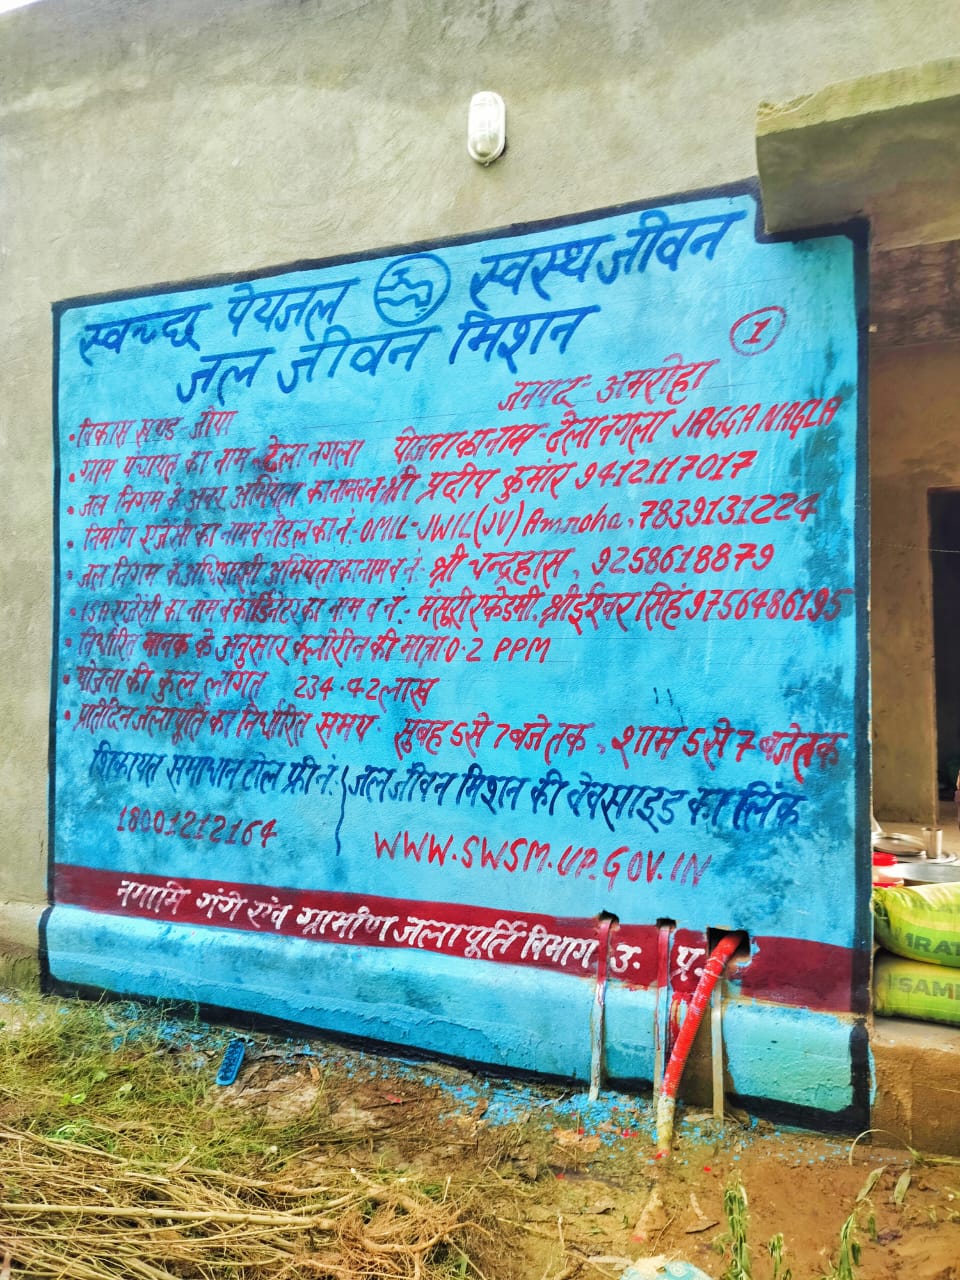 स्वच्छ पेयजल स्वस्थ जीवन
जल जीवन मिशन
1
जनपद - अमरोहा
• विकास खण्ड - जोया
• ग्राम पंचायत का नाम - देला नगला योजना का नाम - देला नगला JAGGA NAGLA
• जल निगम के अवर अभियंता का नाम व नं. श्री प्रदीप कुमार 9412117017
• निर्माण एजेंसी का नाम व नोडल का नं. - OMIL-JWIL(JV) Amroha, 7839131224
• जल निगम के अधिशासी अभियंता का नाम व नं. - श्री चन्द्रहास, 9258618879
• ISA एजेंसी का नाम व कोर्डिनेटर का नाम व नं. - मंसूरी एकेडमी, श्री ईश्वर सिंह 9756486195
• निर्धारित मानक के अनुसार क्लोरिन की मात्रा 0.2 PPM
• योजना की कुल लागत 234.42 लाख
• प्रतिदिन जलापूर्ति का निर्धारित समय सुबह 5 से 7 बजे तक, शाम 5 से 7 बजे तक
शिकायत समाधान टोल फ्री नं. जल जीवन मिशन की वेबसाइड का लिंक
18001212164 WWW.SWSM.UP.GOV.IN
नमामि गंगे एंव ग्रामीण जलापूर्ति विभाग उ. प्र.